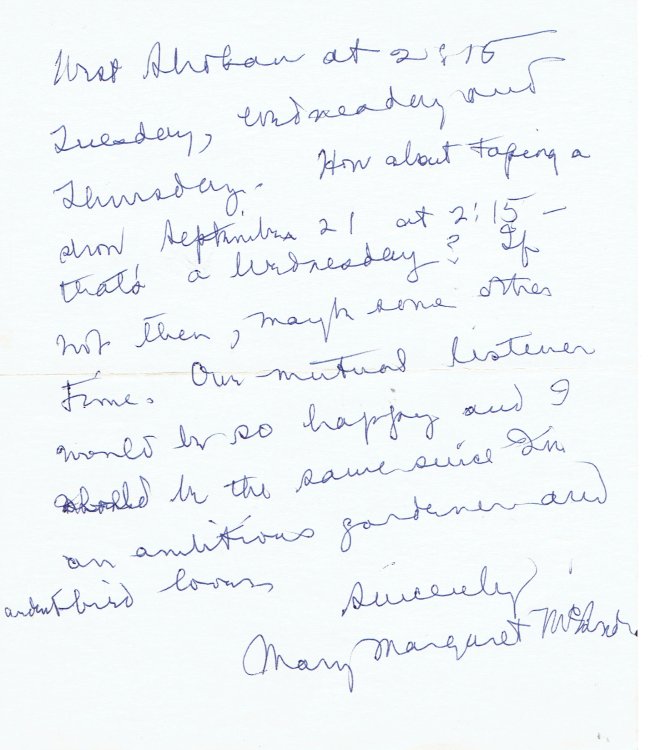 West Shokan at 2:15
Tuesday, Wednesday and
Thursday. How about taping a
show September 21 at 2:15 –
that's a Wednesday? If
not then, maybe some other
time. Our mutual listener
would be so happy and I
should be the same since I'm
an ambitious gardener and
ardent bird lover.
Sincerely,
Mary Margaret McBride